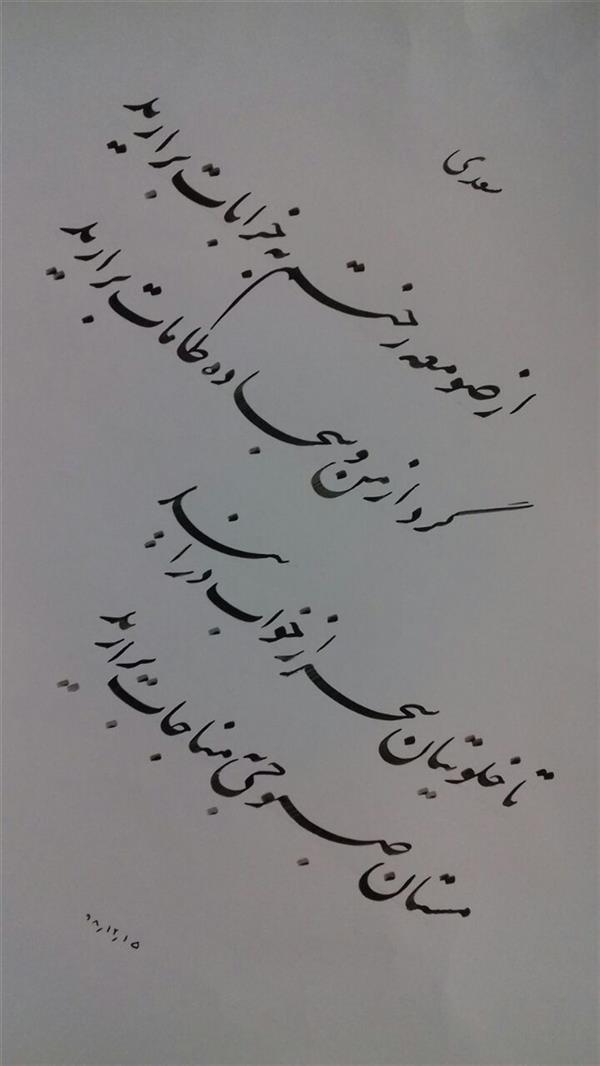 سعدی
از صومعه رختم به خرابات برارید
گرد از من و سجاده طامات برارید
تا خلوتیان سحر از خواب درایند
مستان صبوحی به مناجات برارید
۹۸٫۱۲٫۱۵